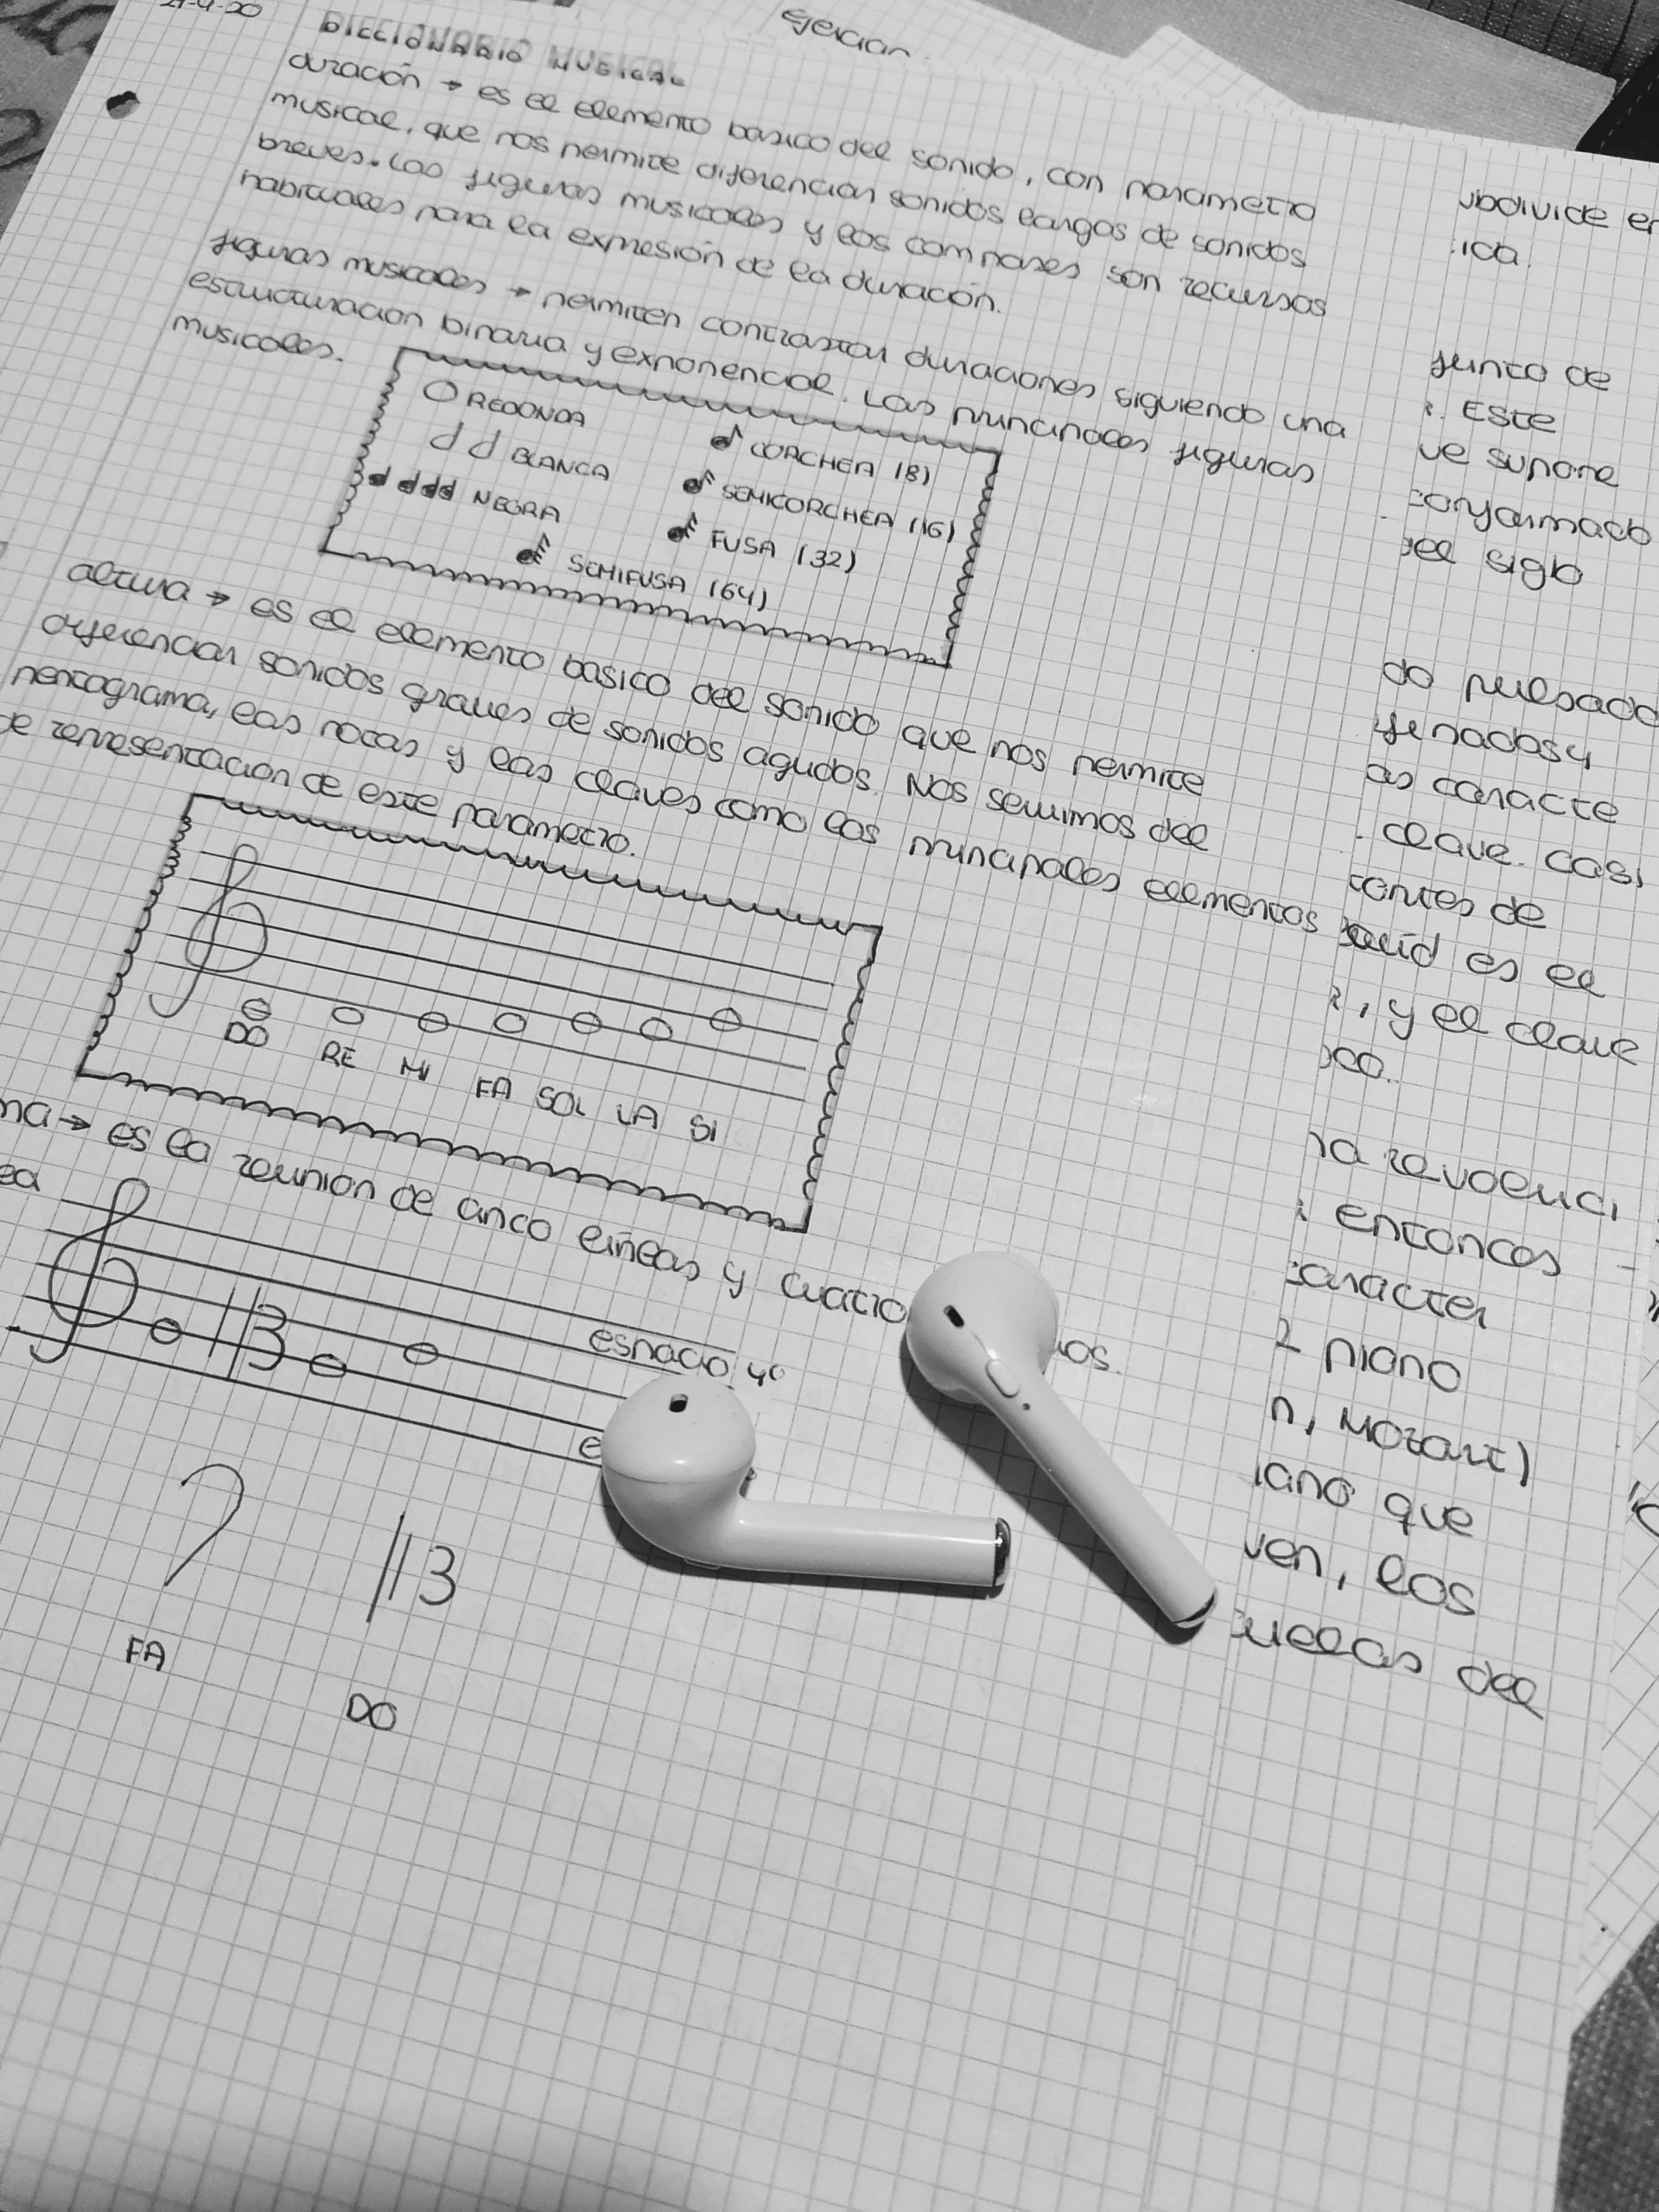 21-4-20
Ejercicios
DICCIONARIO MUSICAL
duración → es el elemento basico del sonido, con parametro
musical, que nos permite diferenciar sonidos largos de sonidos
breves. Las figuras musicales y los compases son recursos
habituales para la expresión de la duración.
figuras musicales → permiten contrastar duraciones siguiendo una
estructuracion binaria y exponencial. Las principales figuras
musicales.
REDONDA
BLANCA
NEGRA
CORCHEA (8)
SEMICORCHEA (16)
FUSA (32)
SEMIFUSA (64)
altura → es el elemento basico del sonido que nos permite
diferenciar sonidos graves de sonidos agudos. Nos servimos del
pentagrama, las notas y las claves como las principales elementos
de representacion de este parametro.
DO RE MI FA SOL LA SI
ma → es la reunion de cinco liñeas y cuatro
ea
espacio 4º
ios.
FA
DO
ubdivide en
ica.
junto de
Este
ue supone
conformado
del siglo
do pulsado
as caracte
. clave. Casi
tantes de
es el
, y el clave
oco.
na revoluci
entonces
caracter
l piano
n, Mozart)
iano que
ven, los
cuelas del